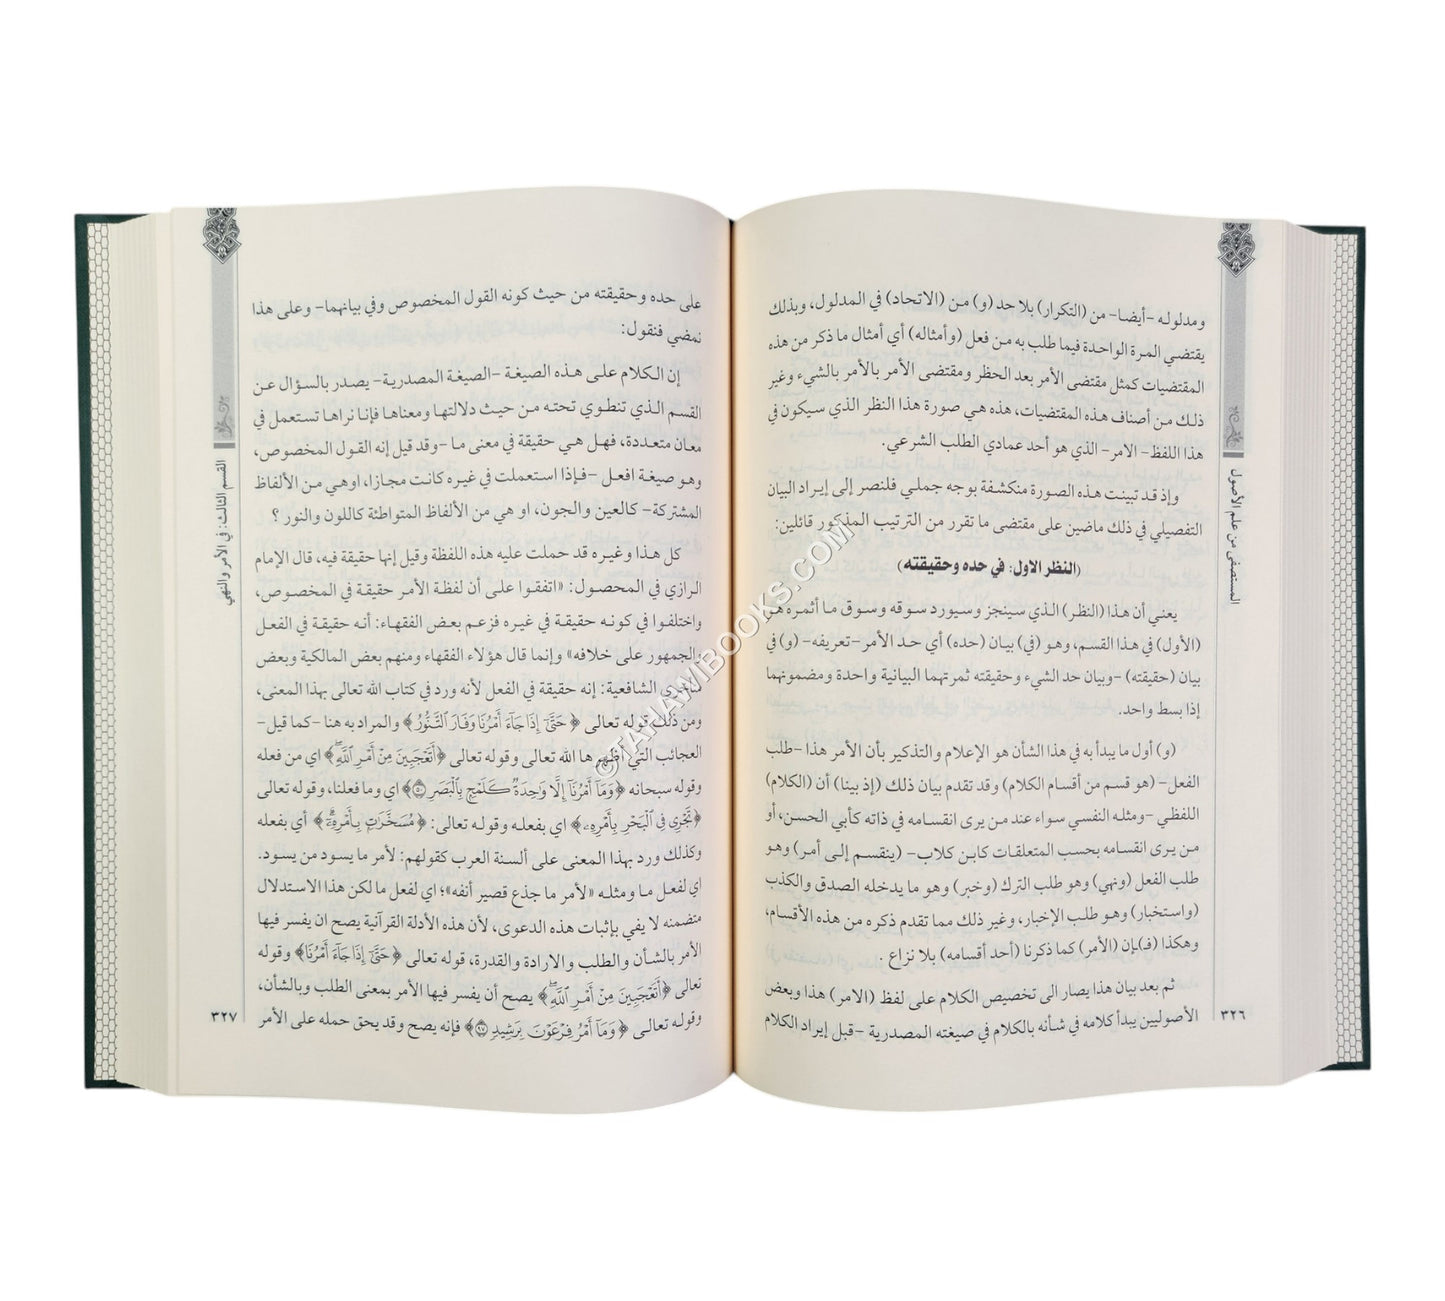 ومدلوله -أيضا- من (التكرار) بلا حد (و) من (الاتحاد) في المدلول، وبذلك
يقتضي المرة الواحدة فيما طلب به من فعل (وأمثاله) أي أمثال ما ذكر من هذه
المقتضيات كمثل مقتضى الأمر بعد الحظر ومقتضى الأمر بالأمر بالشيء وغير
ذلك من أصناف هذه المقتضيات، هذه هي صورة هذا النظر الذي سيكون في
هذا اللفظ- الامر- الذي هو أحد عمادي الطلب الشرعي.
وإذ قد تبينت هذه الصورة منكشفة بوجه جملي فلنصر إلى إيراد البيان
التفصيلي في ذلك ماضين على مقتضى ما تقرر من الترتيب المذكور قائلين:
(النظر الاول: في حده وحقيقته)
يعني أن هذا (النظر) الذي سينجز وسيورد سوقه وسوق ما أثمره هو
(الأول) في هذا القسم، وهو (في) بيان (حده) أي حد الأمر-تعريفه- (و) في
بيان (حقيقته) -وبيان حد الشيء وحقيقته ثمرتهما البيانية واحدة ومضمونهما
إذا بسط واحد.
(و) أول ما يبدأ به في هذا الشأن هو الإعلام والتذكير بأن الأمر هذا -طلب
الفعل- (هو قسم من أقسام الكلام) وقد تقدم بيان ذلك (إذ بينا) أن (الكلام)
اللفظي -ومثله النفسي سواء عند من يرى انقسامه في ذاته كأبي الحسن، أو
من يرى انقسامه بحسب المتعلقات كابن كلاب- (ينقسم إلى أمر) وهو
طلب الفعل (ونهي) وهو طلب الترك (وخبر) وهو ما يدخله الصدق والكذب
(واستخبار) وهو طلب الإخبار، وغير ذلك مما تقدم ذكره من هذه الأقسام،
وهكذا (فـ)ـإن (الأمر) كما ذكرنا (أحد أقسامه) بلا نزاع .
ثم بعد بيان هذا يصار الى تخصيص الكلام على لفظ (الامر) هذا وبعض
الأصوليين يبدأ كلامه في شأنه بالكلام في صيغته المصدرية -قبل إيراد الكلام
المستصفى من علم الأصول
٣٢٦
على حده وحقيقته من حيث كونه القول المخصوص وفي بيانهما- وعلى هذا
نمضي فنقول:
إن الكلام على هذه الصيغة -الصيغة المصدرية- يصدر بالسؤال عن
القسم الذي تنطوي تحته من حيث دلالتها ومعناها فإنا نراها تستعمل في
معان متعددة، فهل هي حقيقة في معنى ما -وقد قيل إنه القول المخصوص،
وهو صيغة افعل -فإذا استعملت في غيره كانت مجازا، اوهي من الألفاظ
المشتركة- كالعين والجون، او هي من الألفاظ المتواطئة كاللون والنور ؟
كل هذا وغيره قد حملت عليه هذه اللفظة وقيل إنها حقيقة فيه، قال الإمام
الرازي في المحصول: «اتفقوا على أن لفظة الأمر حقيقة في المخصوص،
واختلفوا في كونه حقيقة في غيره فزعم بعض الفقهاء: أنه حقيقة في الفعل
والجمهور على خلافه» وإنما قال هؤلاء الفقهاء ومنهم بعض المالكية وبعض
الشافعية: إنه حقيقة في الفعل لأنه ورد في كتاب الله تعالى بهذا المعنى،
ومن ذلك قوله تعالى ﴿حَتَّىٰٓ إِذَا جَآءَ أَمْرُنَا وَفَارَ ٱلتَّنُّورُ﴾ والمراد به هنا -كما قيل-
العجائب التي أظهرها الله تعالى وقوله تعالى ﴿أَتَعْجَبِينَ مِنْ أَمْرِ ٱللَّهِ﴾ اي من فعله
وقوله سبحانه ﴿وَمَآ أَمْرُنَآ إِلَّا وَٰحِدَةٌ كَلَمْحٍۭ بِٱلْبَصَرِ ٥٠﴾ اي وما فعلنا، وقوله تعالى
﴿تَجْرِي فِي ٱلْبَحْرِ بِأَمْرِهِۦ﴾ اي بفعله وقوله تعالى: ﴿مُسَخَّرَٰتٍۭ بِأَمْرِهِۦٓ﴾ أي بفعله
وكذلك ورد بهذا المعنى على ألسنة العرب كقولهم: لأمر ما يسود من يسود.
اي لفعل ما ومثله «لأمر ما جذع قصير أنفه»؛ اي لفعل ما لكن هذا الاستدلال
متضمنه لا يفي بإثبات هذه الدعوى، لأن هذه الأدلة القرآنية يصح ان يفسر فيها
الأمر بالشأن والطلب والارادة والقدرة، قوله تعالى ﴿حَتَّىٰٓ إِذَا جَآءَ أَمْرُنَا﴾ وقوله
تعالى ﴿أَتَعْجَبِينَ مِنْ أَمْرِ ٱللَّهِ﴾ يصح أن يفسر فيها الأمر بمعنى الطلب وبالشأن،
وقوله تعالى ﴿وَمَآ أَمْرُ فِرْعَوْنَ بِرَشِيدٍ ٩٧﴾ فإنه يصح وقد يحق حمله على الأمر
القسم الثالث: في الأمر والنهي
٣٢٧
©TAHAWIBOOKS.COM